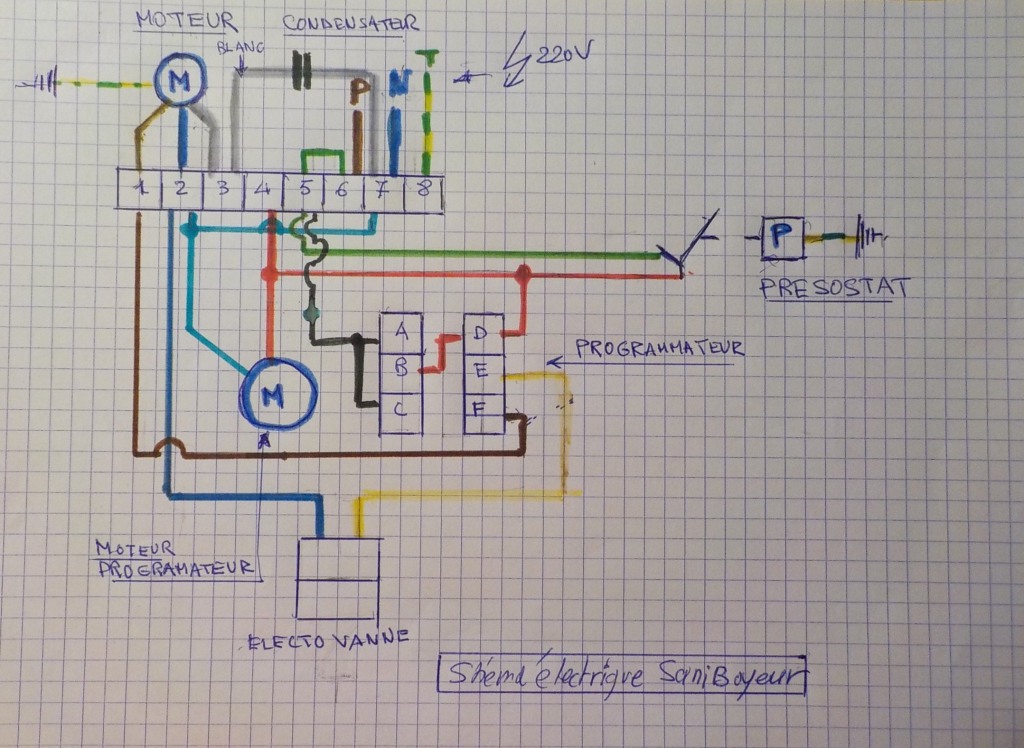 MOTEUR CONDENSATEUR
BLANC
220V
M P N T
1 2 3 4 5 6 7 8
P
PRESOSTAT
A D
PROGRAMMATEUR
B E
M
C F
MOTEUR
PROGRAMATEUR
ELECTO VANNE
Shéma électrique SaniBoyeur